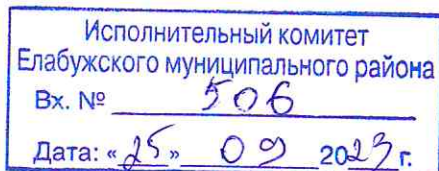 Исполнительный комитет
Елабужского муниципального района
Вх. № 506
Дата: «25» 09 2023 г.